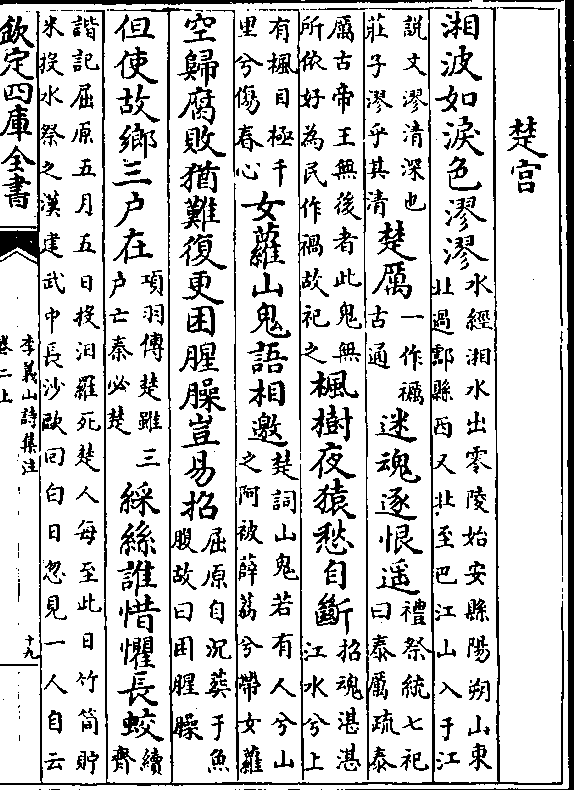 楚宫
湘波如淚色漻漻
水經湘水出零陵始安縣陽朔山東
北過酃縣西又北至巴江山入于江
説文漻清深也
莊子漻乎其清
楚厲
一作禲
古通
迷魂逐恨遥
禮祭統七祀
曰泰厲疏泰
厲古帝王無後者此鬼無
所依好為民作禍故祀之
楓樹夜猿愁自斷
招魂湛湛
江水兮上
有楓目極千
里兮傷春心
女蘿山鬼語相邀
楚詞山鬼若有人兮山
之阿被薜荔兮帶女蘿
空歸腐敗猶難復更困腥臊豈易招
屈原自沉葬于魚
腹故曰困腥臊
但使故鄉三户在
項羽傳楚雖三
户亡秦必楚
綵絲誰惜懼長蛟
續
齊
諧記屈原五月五日投汨羅死楚人每至此日竹筒貯
米投水祭之漢建武中長沙歐回白日忽見一人自云
欽定四庫全書
李義山詩集注
卷二上
十九